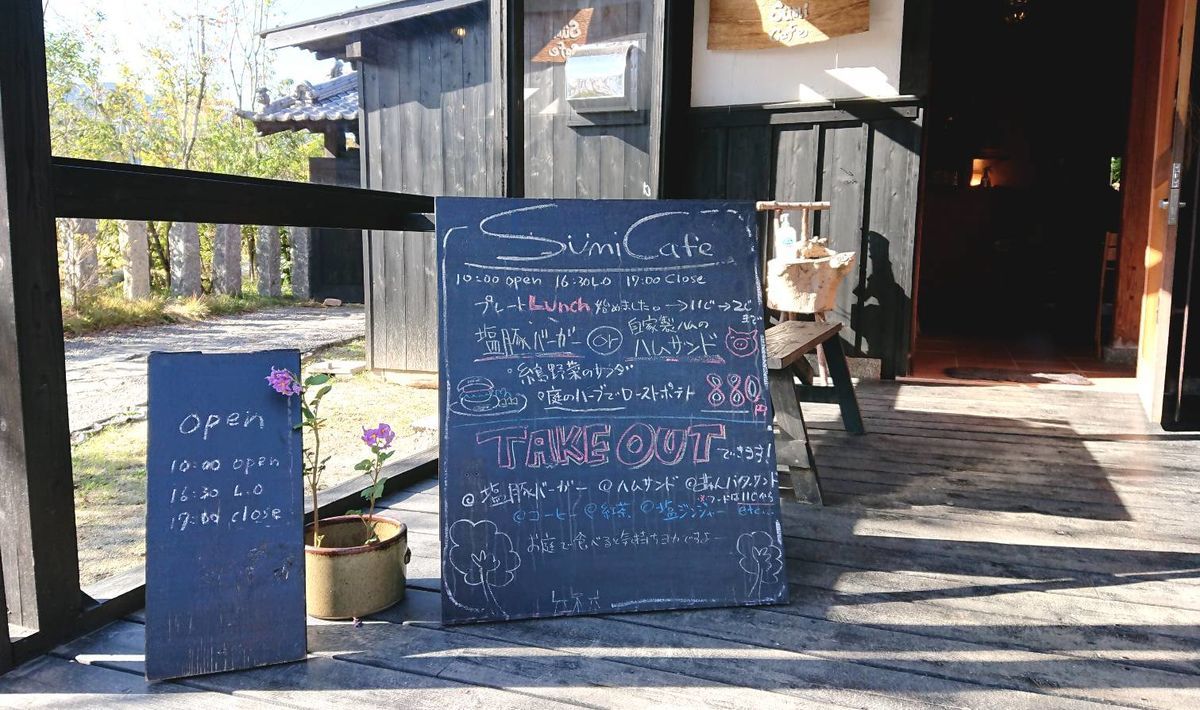 Sumi
Cafe
open
10:00 open
16:30 L.O
17:00 close
Sumi Cafe
10:00 open 16:30 L.O 17:00 close
プレートLunch 始めました。→11じ→2じまで
塩豚バーガー or 自家製ハムのハムサンド
糸島野菜のサラダ
庭のハーブでローストポテト 880円
TAKE OUTできます!
@塩豚バーガー @ハムサンド @あんバタサンド
※フードは11じから
@コーヒー @紅茶 @塩ジンジャー etc...
お庭で食べると気持ちヨカですよー